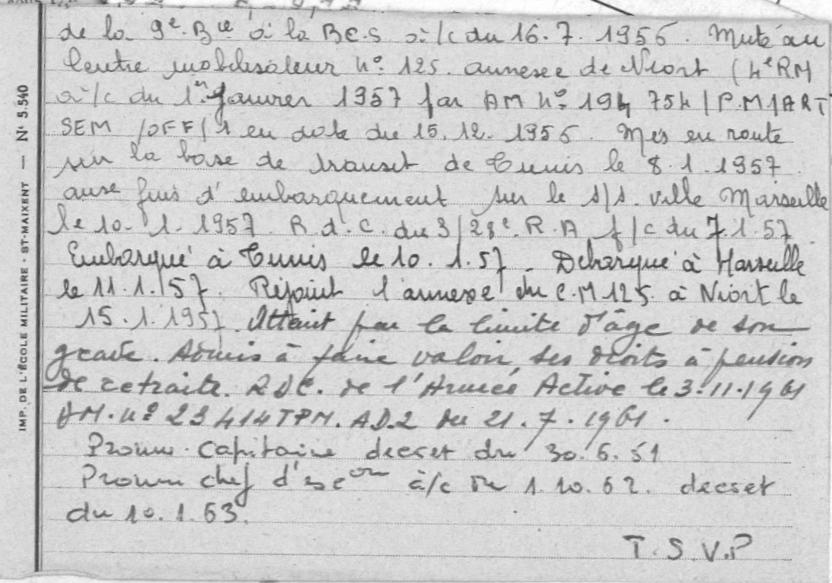 de la 9e Bie à la BCS à/c du 16.7.1956. Muté au
Centre mobilisateur no 125. annexe de Niort (4e RM
à/c du 1er Janvier 1957 par AM no 194 754/PM/ART
SEM/OFF/1 en date du 15.12.1956. Mis en route
sur la base de transit de Tunis le 8.1.1957
aux fins d'embarquement sur le s/s. ville Marseille
le 10.1.1957. R.d.C. du 3/28e R.A. à/c du 7.1.57.
Embarqué à Tunis le 10.1.57. Débarqué à Marseille
le 11.1.57. Rejoint l'annexe du C.M 125 à Niort le
15.1.1957. Atteint par la limite d'âge de son
grade. Admis à faire valoir ses droits à pension
de retraite. RDC. de l'Armée Active le 3.11.1961
DM. no 23414TPM.AD.2 du 21.7.1961.
Promu Capitaine decret du 30.6.51
Promu chef d'escon à/c du 1.10.62. decret
du 10.1.63.
T.S.V.P
IMP. DE L'ÉCOLE MILITAIRE - ST-MAIXENT — N° 5.540